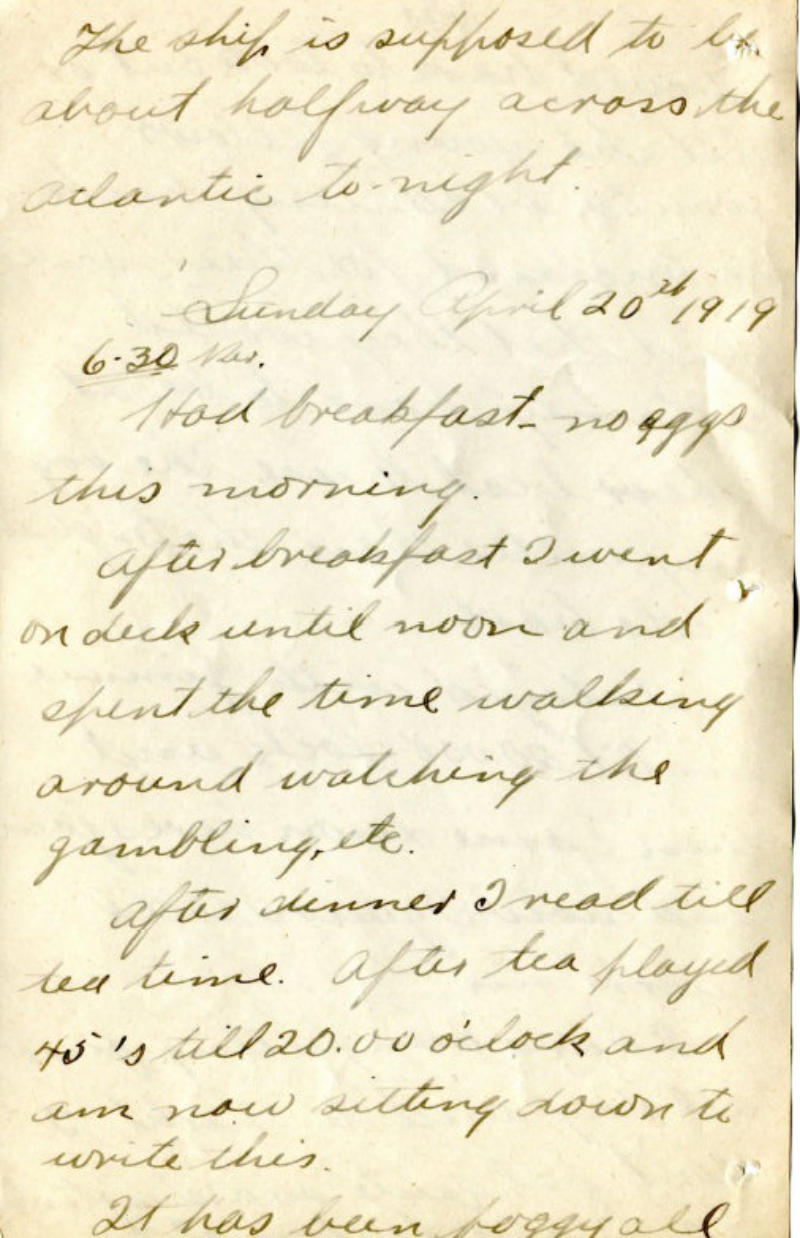 The ship is supposed to be
about halfway across the
atlantic to-night.
Sunday April 20th 1919
6.30
Had breakfast - no eggs
this morning.
After breakfast I went
on deck until noon and
spent the time walking
around watching the
gambling, etc.
After dinner I read till
tea time. After tea played
45's till 20.00 o'clock and
am now sitting down to
write this.
It has been foggy all